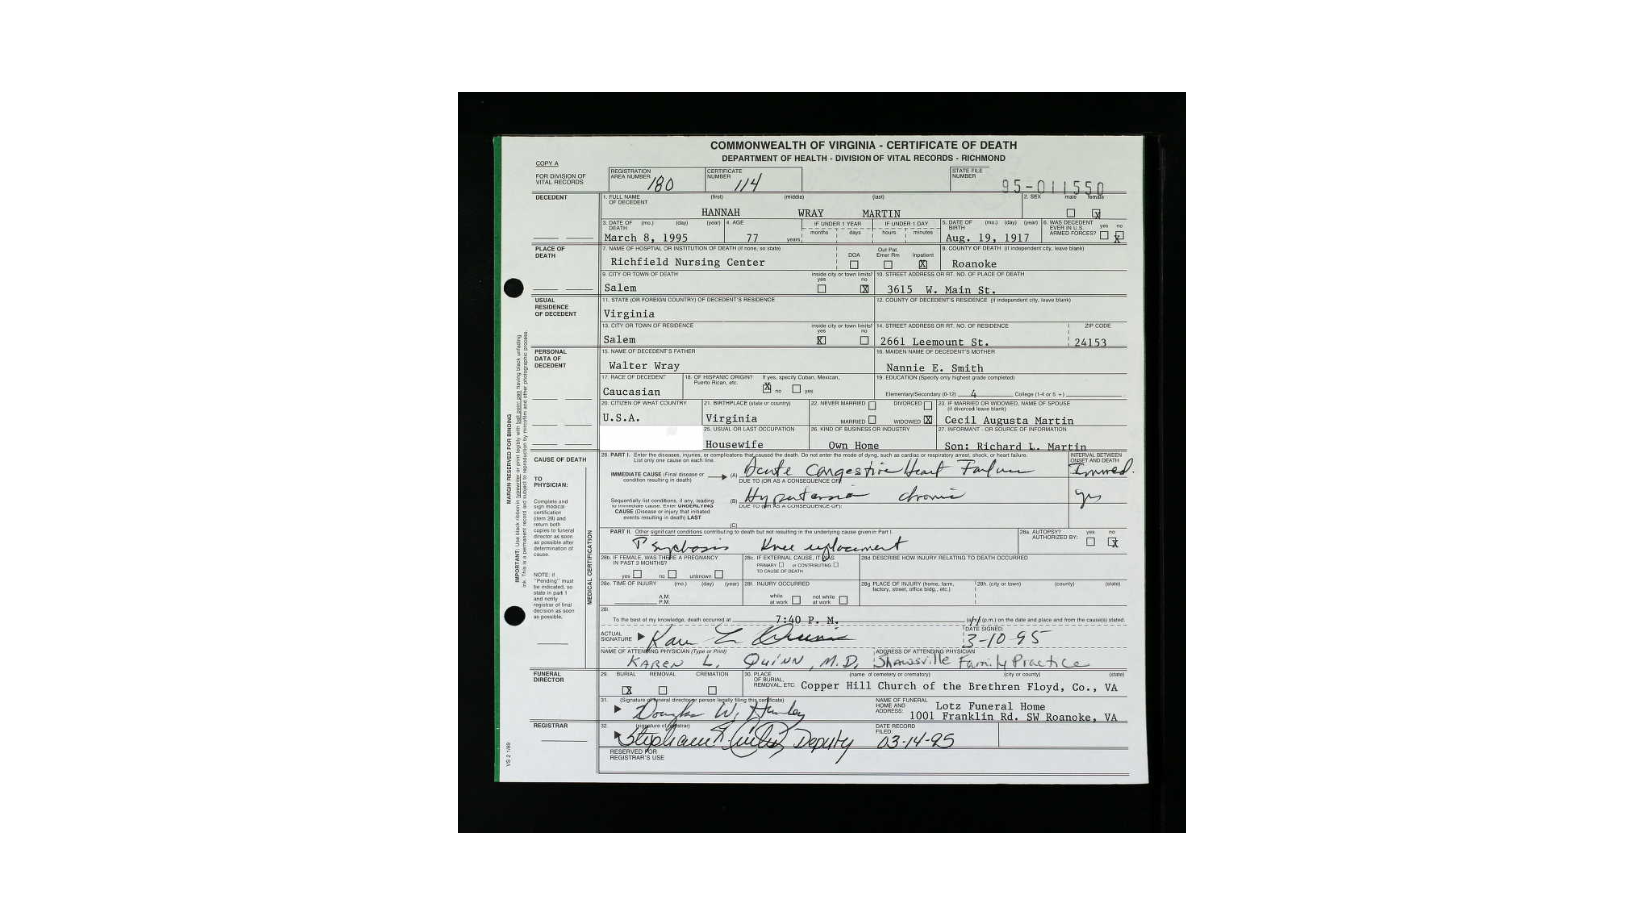 COMMONWEALTH OF VIRGINIA - CERTIFICATE OF DEATH
DEPARTMENT OF HEALTH - DIVISION OF VITAL RECORDS - RICHMOND
COPY A
FOR DIVISION OF VITAL RECORDS
REGISTRATION AREA NUMBER 180 CERTIFICATE NUMBER 114 STATE FILE NUMBER 95-011550
DECEDENT 1. FULL NAME OF DECEDENT (first) (middle) (last) 2. SEX male female
HANNAH WRAY MARTIN X
3. DATE OF DEATH (mo.) (day) (year) 4. AGE IF UNDER 1 YEAR IF UNDER 1 DAY 5. DATE OF BIRTH (mo.) (day) (year) 6. WAS DECEDENT EVER IN U.S. ARMED FORCES? yes no
March 8, 1995 77 years months days hours minutes Aug. 19, 1917 X
PLACE OF DEATH 7. NAME OF HOSPITAL OR INSTITUTION OF DEATH (if none, so state) DOA Out Pat. Emer Rm Inpatient 8. COUNTY OF DEATH (if independent city, leave blank)
Richfield Nursing Center X Roanoke
9. CITY OR TOWN OF DEATH inside city or town limits? yes no 10. STREET ADDRESS OR RT. NO. OF PLACE OF DEATH
Salem X 3615 W. Main St.
USUAL RESIDENCE OF DECEDENT 11. STATE (OR FOREIGN COUNTRY) OF DECEDENT'S RESIDENCE 12. COUNTY OF DECEDENT'S RESIDENCE (if independent city, leave blank)
Virginia
13. CITY OR TOWN OF RESIDENCE inside city or town limits? yes no 14. STREET ADDRESS OR RT. NO. OF RESIDENCE ZIP CODE
Salem X 2661 Leemount St. 24153
PERSONAL DATA OF DECEDENT 15. NAME OF DECEDENT'S FATHER 16. MAIDEN NAME OF DECEDENT'S MOTHER
Walter Wray Nannie E. Smith
17. RACE OF DECEDENT 18. OF HISPANIC ORIGIN? If yes, specify Cuban, Mexican, Puerto Rican, etc. 19. EDUCATION (Specify only highest grade completed)
Caucasian X no yes Elementary/Secondary (0-12) 4 College (1-4 or 5 +)
20. CITIZEN OF WHAT COUNTRY 21. BIRTHPLACE (state or country) 22. NEVER MARRIED DIVORCED 23. IF MARRIED OR WIDOWED, NAME OF SPOUSE (if divorced leave blank)
U.S.A. Virginia MARRIED WIDOWED X Cecil Augusta Martin
25. USUAL OR LAST OCCUPATION 26. KIND OF BUSINESS OR INDUSTRY 27. INFORMANT - OR SOURCE OF INFORMATION
Housewife Own Home Son: Richard L. Martin
CAUSE OF DEATH 28. PART I. Enter the diseases, injuries, or complications that caused the death. Do not enter the mode of dying, such as cardiac or respiratory arrest, shock, or heart failure. List only one cause on each line. INTERVAL BETWEEN ONSET AND DEATH
TO PHYSICIAN: IMMEDIATE CAUSE (Final disease or condition resulting in death) (A) Acute Congestive Heart Failure Immed.
DUE TO (OR AS A CONSEQUENCE OF)
Complete and sign medical certification (item 28) and return both copies to funeral director as soon as possible after determination of cause.
Sequentially list conditions, if any, leading to immediate cause. Enter UNDERLYING CAUSE (Disease or injury that initiated events resulting in death) LAST (B) chronic yrs
DUE TO (OR AS A CONSEQUENCE OF):
(C)
PART II. Other significant conditions contributing to death but not resulting in the underlying cause given in Part I. 28a. AUTOPSY? AUTHORIZED BY: yes no
Psychosis Knee replacement X
28b. IF FEMALE, WAS THERE A PREGNANCY IN PAST 3 MONTHS? 28c. IF EXTERNAL CAUSE, IT WAS 28d. DESCRIBE HOW INJURY RELATING TO DEATH OCCURRED
yes no unknown PRIMARY or CONTRIBUTING TO CAUSE OF DEATH
NOTE: If "Pending" must be indicated, so state in part I and notify registrar of final decision as soon as possible.
28e. TIME OF INJURY (mo.) (day) (year) 28f. INJURY OCCURRED 28g. PLACE OF INJURY (home, farm, factory, street, office bldg., etc.) 28h. (city or town) (county) (state)
A.M. P.M. while at work not while at work
MEDICAL CERTIFICATION
28i.
To the best of my knowledge, death occurred at 7:40 P. M. (p.m.) on the date and place and from the cause(s) stated.
ACTUAL SIGNATURE DATE SIGNED 3-10-95
NAME OF ATTENDING PHYSICIAN (Type or Print) ADDRESS OF ATTENDING PHYSICIAN
KAREN L. QUINN, M.D. Shawsville Family Practice
FUNERAL DIRECTOR 29. BURIAL REMOVAL CREMATION 30. PLACE OF BURIAL, REMOVAL, ETC. (name of cemetery or crematory) (city or county) (state)
X Copper Hill Church of the Brethren Floyd, Co., VA
31. (Signature of funeral director or person legally filing this certificate) NAME OF FUNERAL HOME AND ADDRESS: Lotz Funeral Home
1001 Franklin Rd. SW Roanoke, VA
REGISTRAR 32. (signature of registrar) DATE RECORD FILED
Deputy 03-14-95
RESERVED FOR REGISTRAR'S USE
VS 2 1/89
MARGIN RESERVED FOR BINDING